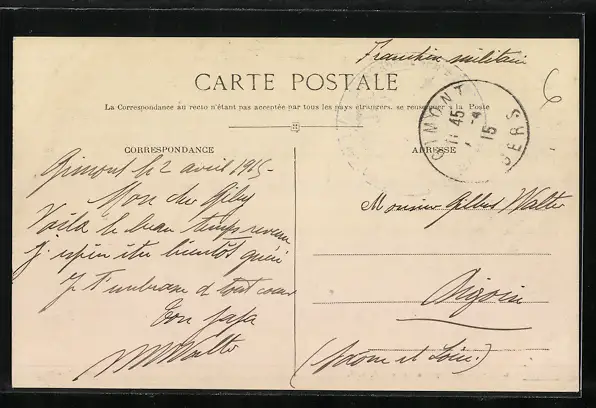 Franchise militaire
CARTE POSTALE
La Correspondance au recto n'étant pas acceptée par tous les pays étrangers, se renseigner à la Poste
6
GIMONT
11 45
-4
15
GERS
CORRESPONDANCE
Gimont le 2 avril 1915-
Mon cher
Voilà le beau temps revenu
j'espère être bientôt guéri
Je t'embrasse de tout coeur
Ton papa
Walter
ADRESSE
Monsieur Walter
Digoin
(Saone et Loire.)